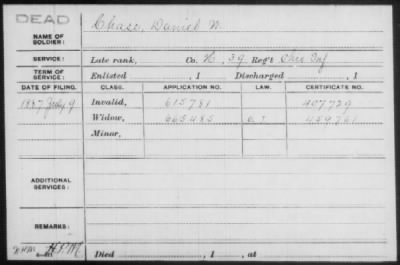 DEAD
NAME OF SOLDIER: Chase, Daniel W.
SERVICE: Late rank, Co. K, 39 Reg't Ohio Inf
TERM OF SERVICE: Enlisted , 1 Discharged , 1
DATE OF FILING. CLASS. APPLICATION NO. LAW. CERTIFICATE NO.
1887 July 9 Invalid, 615781 407729
Widow, 665485
Minor,
ADDITIONAL SERVICES:
REMARKS:
Died , 1 , at